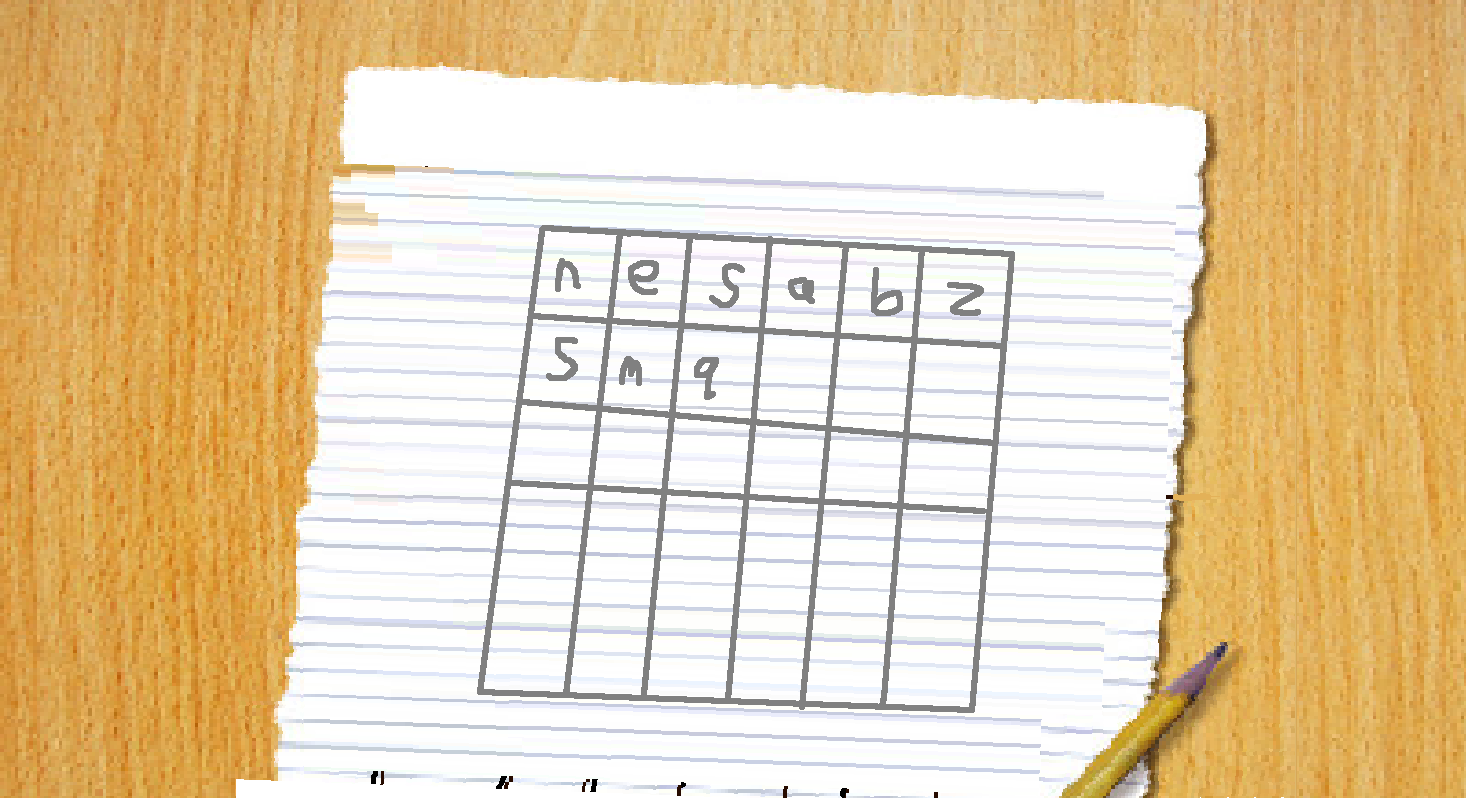 n e s a b z
s n q